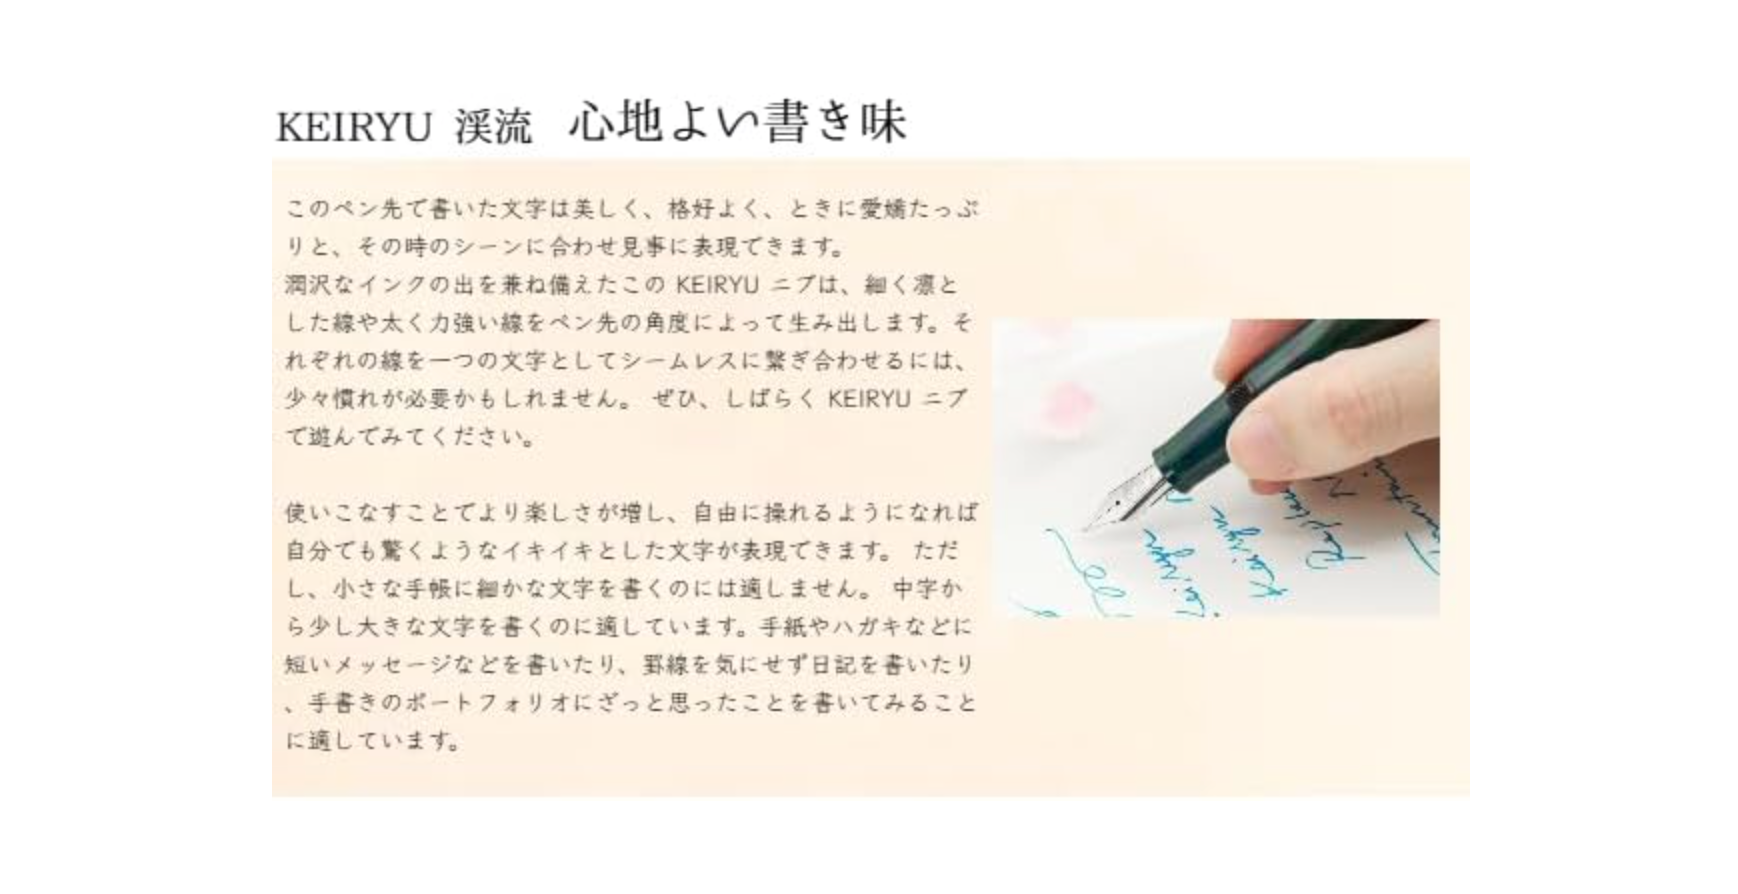 KEIRYU 渓流 心地よい書き味
このペン先で書いた文字は美しく、格好よく、ときに愛嬌たっぷ
りと、その時のシーンに合わせ見事に表現できます。
潤沢なインクの出を兼ね備えたこの KEIRYU ニブは、細く凛と
した線や太く力強い線をペン先の角度によって生み出します。そ
れぞれの線を一つの文字としてシームレスに繋ぎ合わせるには、
少々慣れが必要かもしれません。 ぜひ、しばらく KEIRYU ニブ
で遊んでみてください。
使いこなすことでより楽しさが増し、自由に操れるようになれば
自分でも驚くようなイキイキとした文字が表現できます。 ただ
し、小さな手帳に細かな文字を書くのには適しません。 中字か
ら少し大きな文字を書くのに適しています。手紙やハガキなどに
短いメッセージなどを書いたり、罫線を気にせず日記を書いたり
、手書きのポートフォリオにざっと思ったことを書いてみること
に適しています。
Keiryu
Keiryu